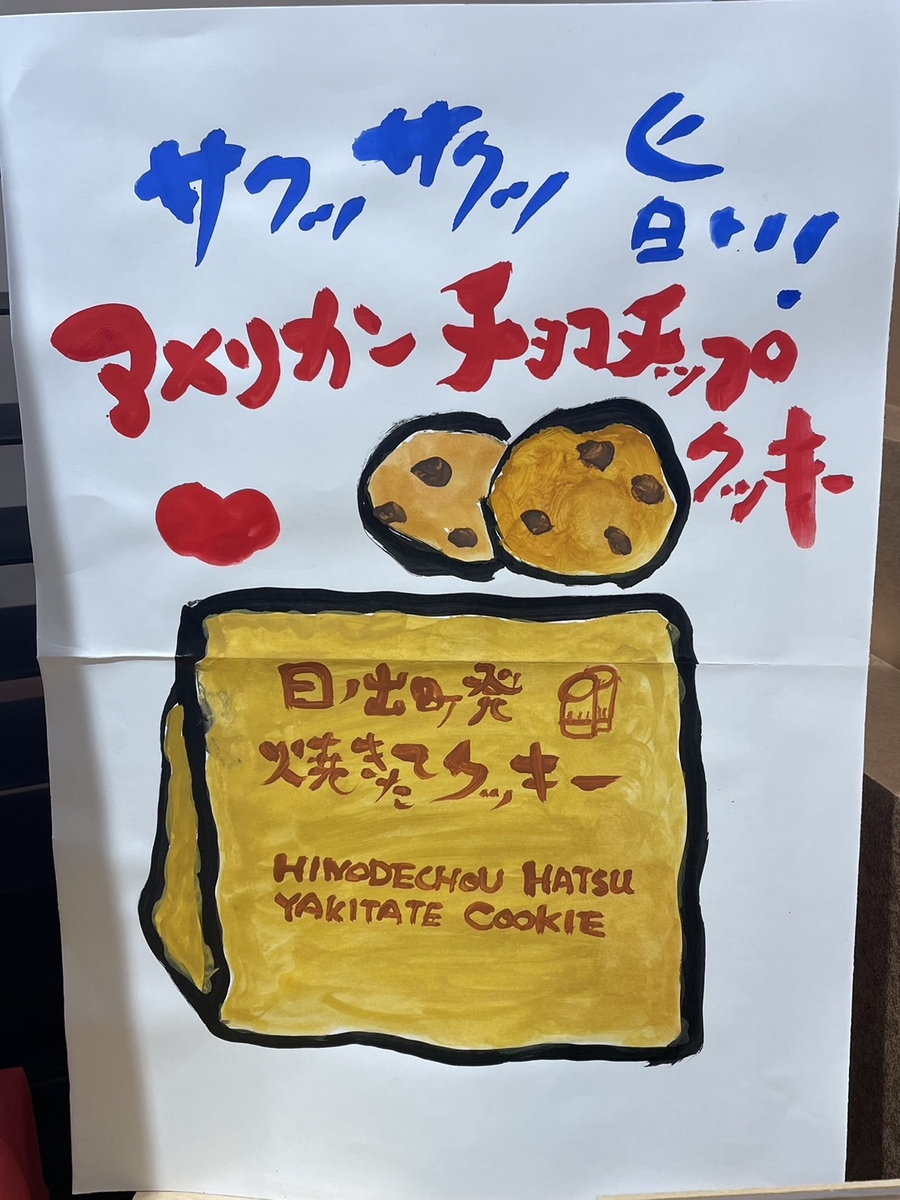 サクッサクッ 旨ッ!
アメリカンチョコチップ
クッキー
日ノ出町発
焼きたてクッキー
HINODECHOU HATSU
YAKITATE COOKIE